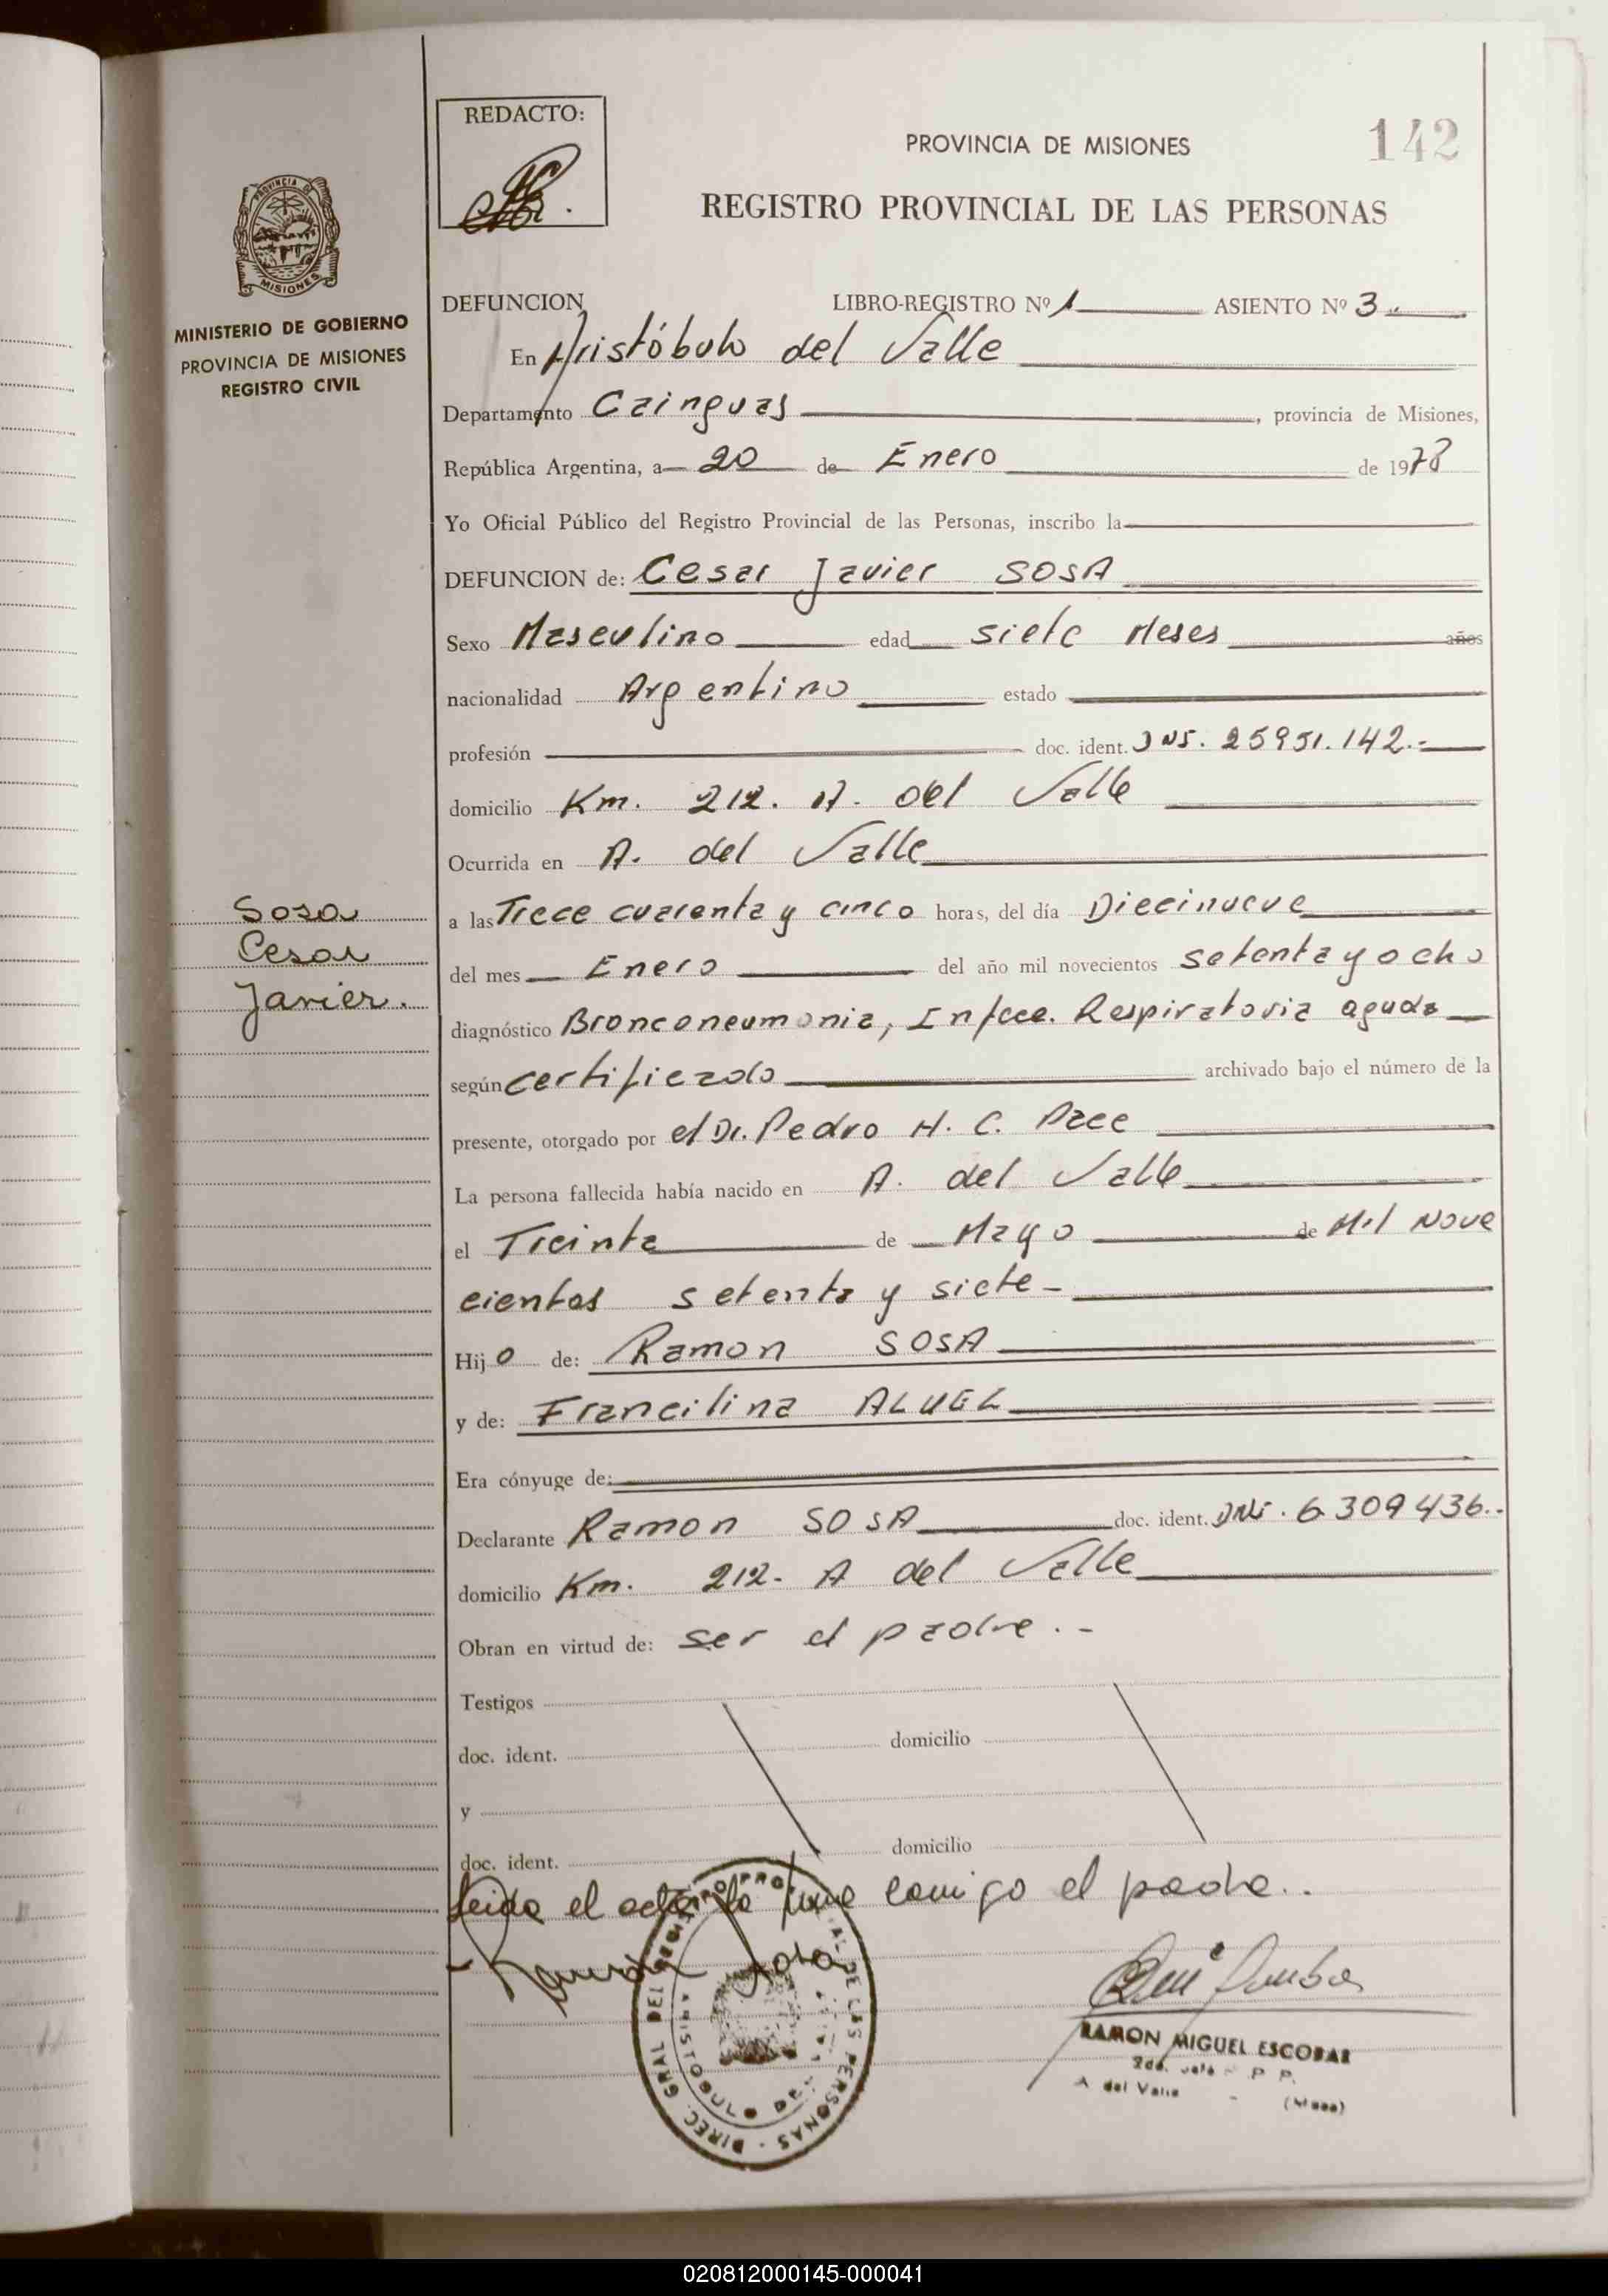 REDACTO:
142
PROVINCIA DE MISIONES
REGISTRO PROVINCIAL DE LAS PERSONAS
PROVINCIA D
MISIONES
MINISTERIO DE GOBIERNO
PROVINCIA DE MISIONES
REGISTRO CIVIL
DEFUNCION LIBRO-REGISTRO Nº 1 ASIENTO Nº 3
En Aristóbulo del Valle
Departamento Cainguas, provincia de Misiones,
República Argentina, a 20 de Enero de 1978
Yo Oficial Público del Registro Provincial de las Personas, inscribo la
DEFUNCION de: Cesar Javier SOSA
Sexo Masculino edad siete Meses años
nacionalidad Argentino estado
profesión doc. ident. DNI. 25951.142.-
domicilio Km. 212. A. del Valle
Ocurrida en A. del Valle
Sosa
Cesar
Javier.
a las Trece cuarenta y cinco horas, del día Diecinueve
del mes Enero del año mil novecientos setenta y ocho
diagnóstico Bronconeumonia, Infecc. Respiratoria aguda
según certificado archivado bajo el número de la
presente, otorgado por el Dr. Pedro H. C. Pace
La persona fallecida había nacido en A. del Valle
el Treinta de Mayo de Mil Nove
cientos setenta y siete-
Hijo de: Ramon SOSA
y de: Francilina ALUGL
Era cónyuge de:
Declarante Ramon SOSA doc. ident. DNI. 6309436.-
domicilio Km. 212- A del Valle
Obran en virtud de: ser el padre.-
Testigos
doc. ident. domicilio
y
doc. ident. domicilio
Leida el acta la firma conmigo el padre..
Ramon Sosa
DIREC. GRAL DEL REGISTRO PROVINCIAL DE LAS PERSONAS
ARISTOBULO DEL VALLE
RAMON MIGUEL ESCOBAR
A del Valle
020812000145-000041